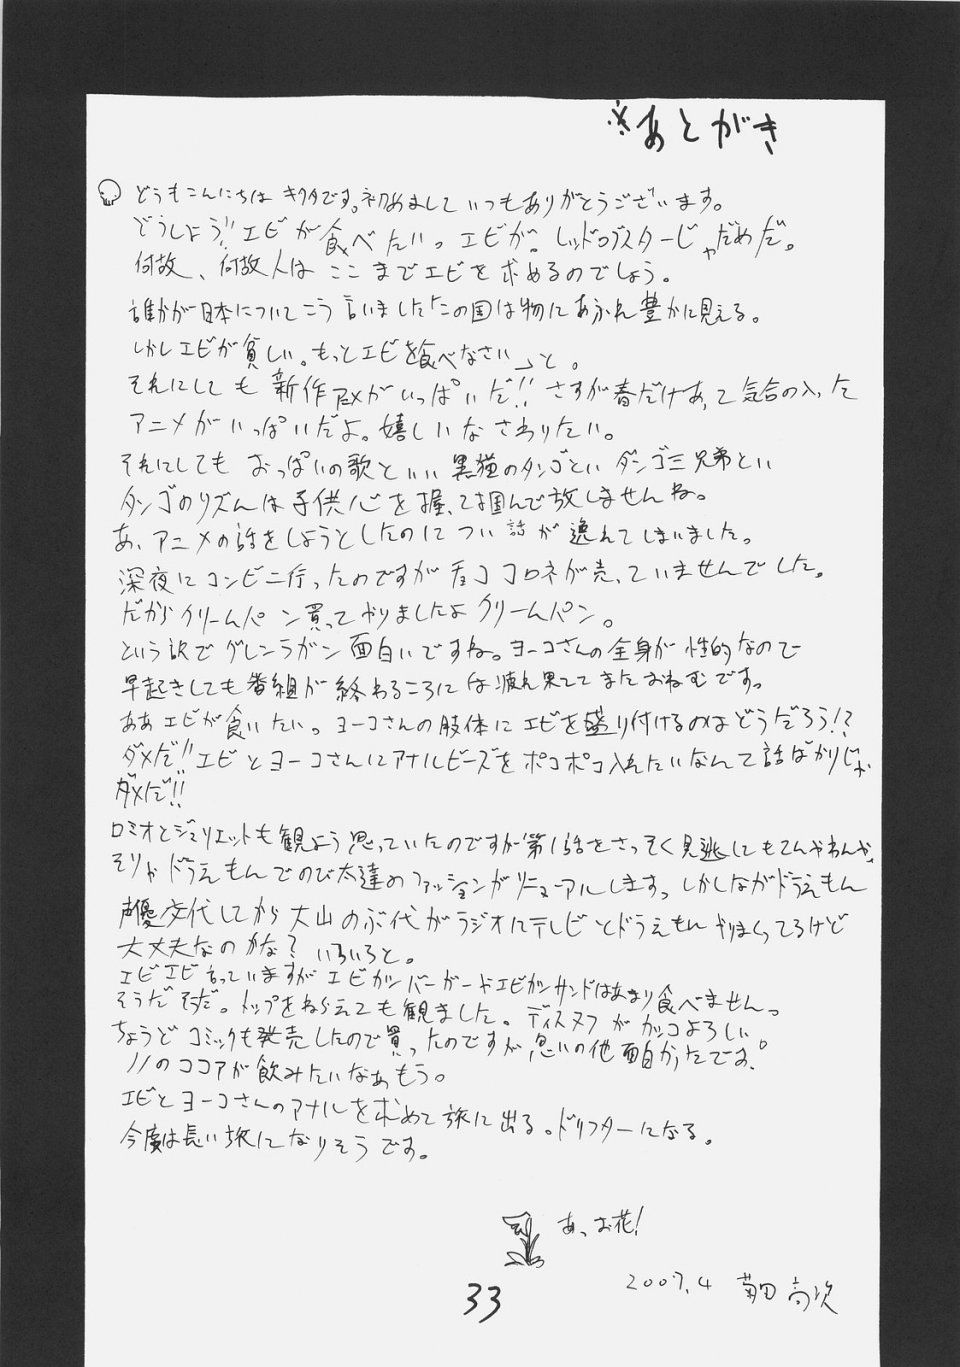 ※あとがき
どうもこんにちは キクタです。初めまして いつもありがとうございます。
どうしよう!!エビが食べたいっ エビが。レッドロブスターじゃだめだ。
何故、何故人は ここまでエビを求めるのでしょう。
誰かが日本についてこう言いました「この国は物にあふれ豊かに見える。
しかしエビが貧しい。もっとエビを食べなさい」と。
それにしても 新作アニメがいっぱいだ!!さすが春だけあって気合の入った
アニメがいっぱいだよ。嬉しいなさわりたい。
それにしても おっぱいの歌といい 黒猫のタンゴといい ダンゴ三兄弟といい
タンゴのリズムは子供心を握って掴んで放しませんね。
あ、アニメの話をしようとしたのについ 話が 逸れてしまいました。
深夜にコンビニ行ったのですがチョココロネが売っていませんでした。
だからクリームパン買ってやりましたよクリームパン。
という訳でグレンラガン面白いですね。ヨーコさんの全身が性的なので
早起きしても番組が終わるころには疲れ果ててまたおねむです。
ああエビが食いたい。ヨーコさんの肢体にエビを盛り付けるのはどうだろう!?
ダメだ!!エビとヨーコさんにアナルビーズをポコポコ入れたいなんて話ばかりじゃ
ダメだ!!
ロミオとジュリエットも観よう思っていたのですが第1話をさっそく見逃してもてんやわんや、
そりゃドラえもんでのび太達のファッションがリニューアルしますっ しかしながドラえもん
声優交代してから大山のぶ代がラジオにテレビとドラえもんやりまくってるけど
大丈夫なのかな?いろいろと。
エビエビ言っていますがエビカツバーガードエビカツサンドはあまり食べません。
そうだそうだ。トップをねらえ2も観ました。ディスヌフがカッコよろしい
ちょうどコミックも発売したので買ったのですが思いの他面白かったです。
ノノのココアが飲みたいなぁもう。
エビとヨーコさんのアナルを求めて旅に出る。ドリフターになる。
今度は長い旅になりそうです。
あっ、お花!
2007.4 菊田 高次
33